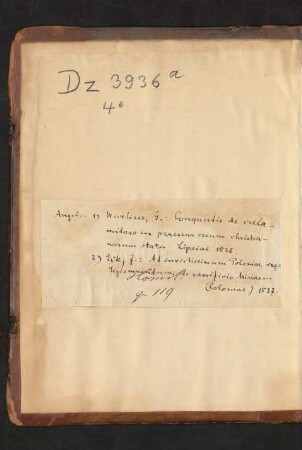 Dz 3936 a
4°
Angeb.: 1) Wicelius, G.: Conquestio de cala-
mitoso in praesens rerum christia-
narum statu Lipsiae 1538
2) Eck, J.: Ad invictissimum Poloniae rege
Sigismundum de sacrificio missae
Coloniae 1527.
Homil.
q. 119